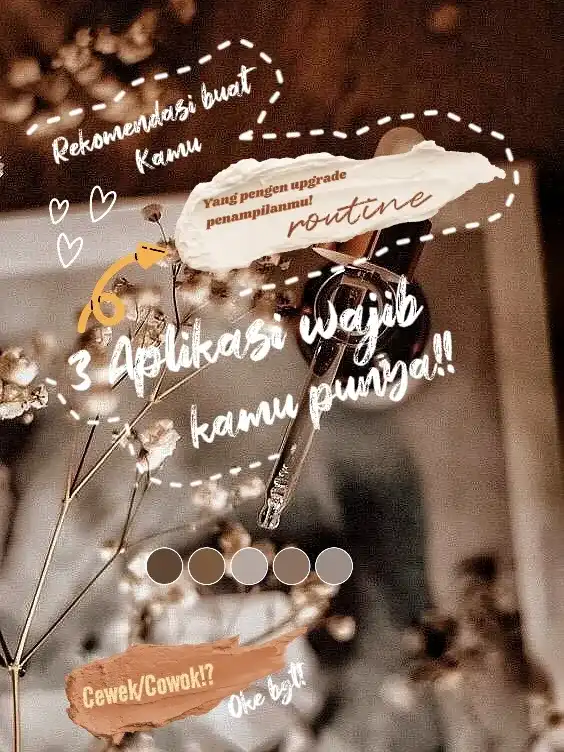 Rekomendasi buat
Kamu
Yang pengen upgrade
penampilanmu!
routine
3 Aplikasi wajib
kamu punya!!
Cewek/Cowok!?
Oke bgt!